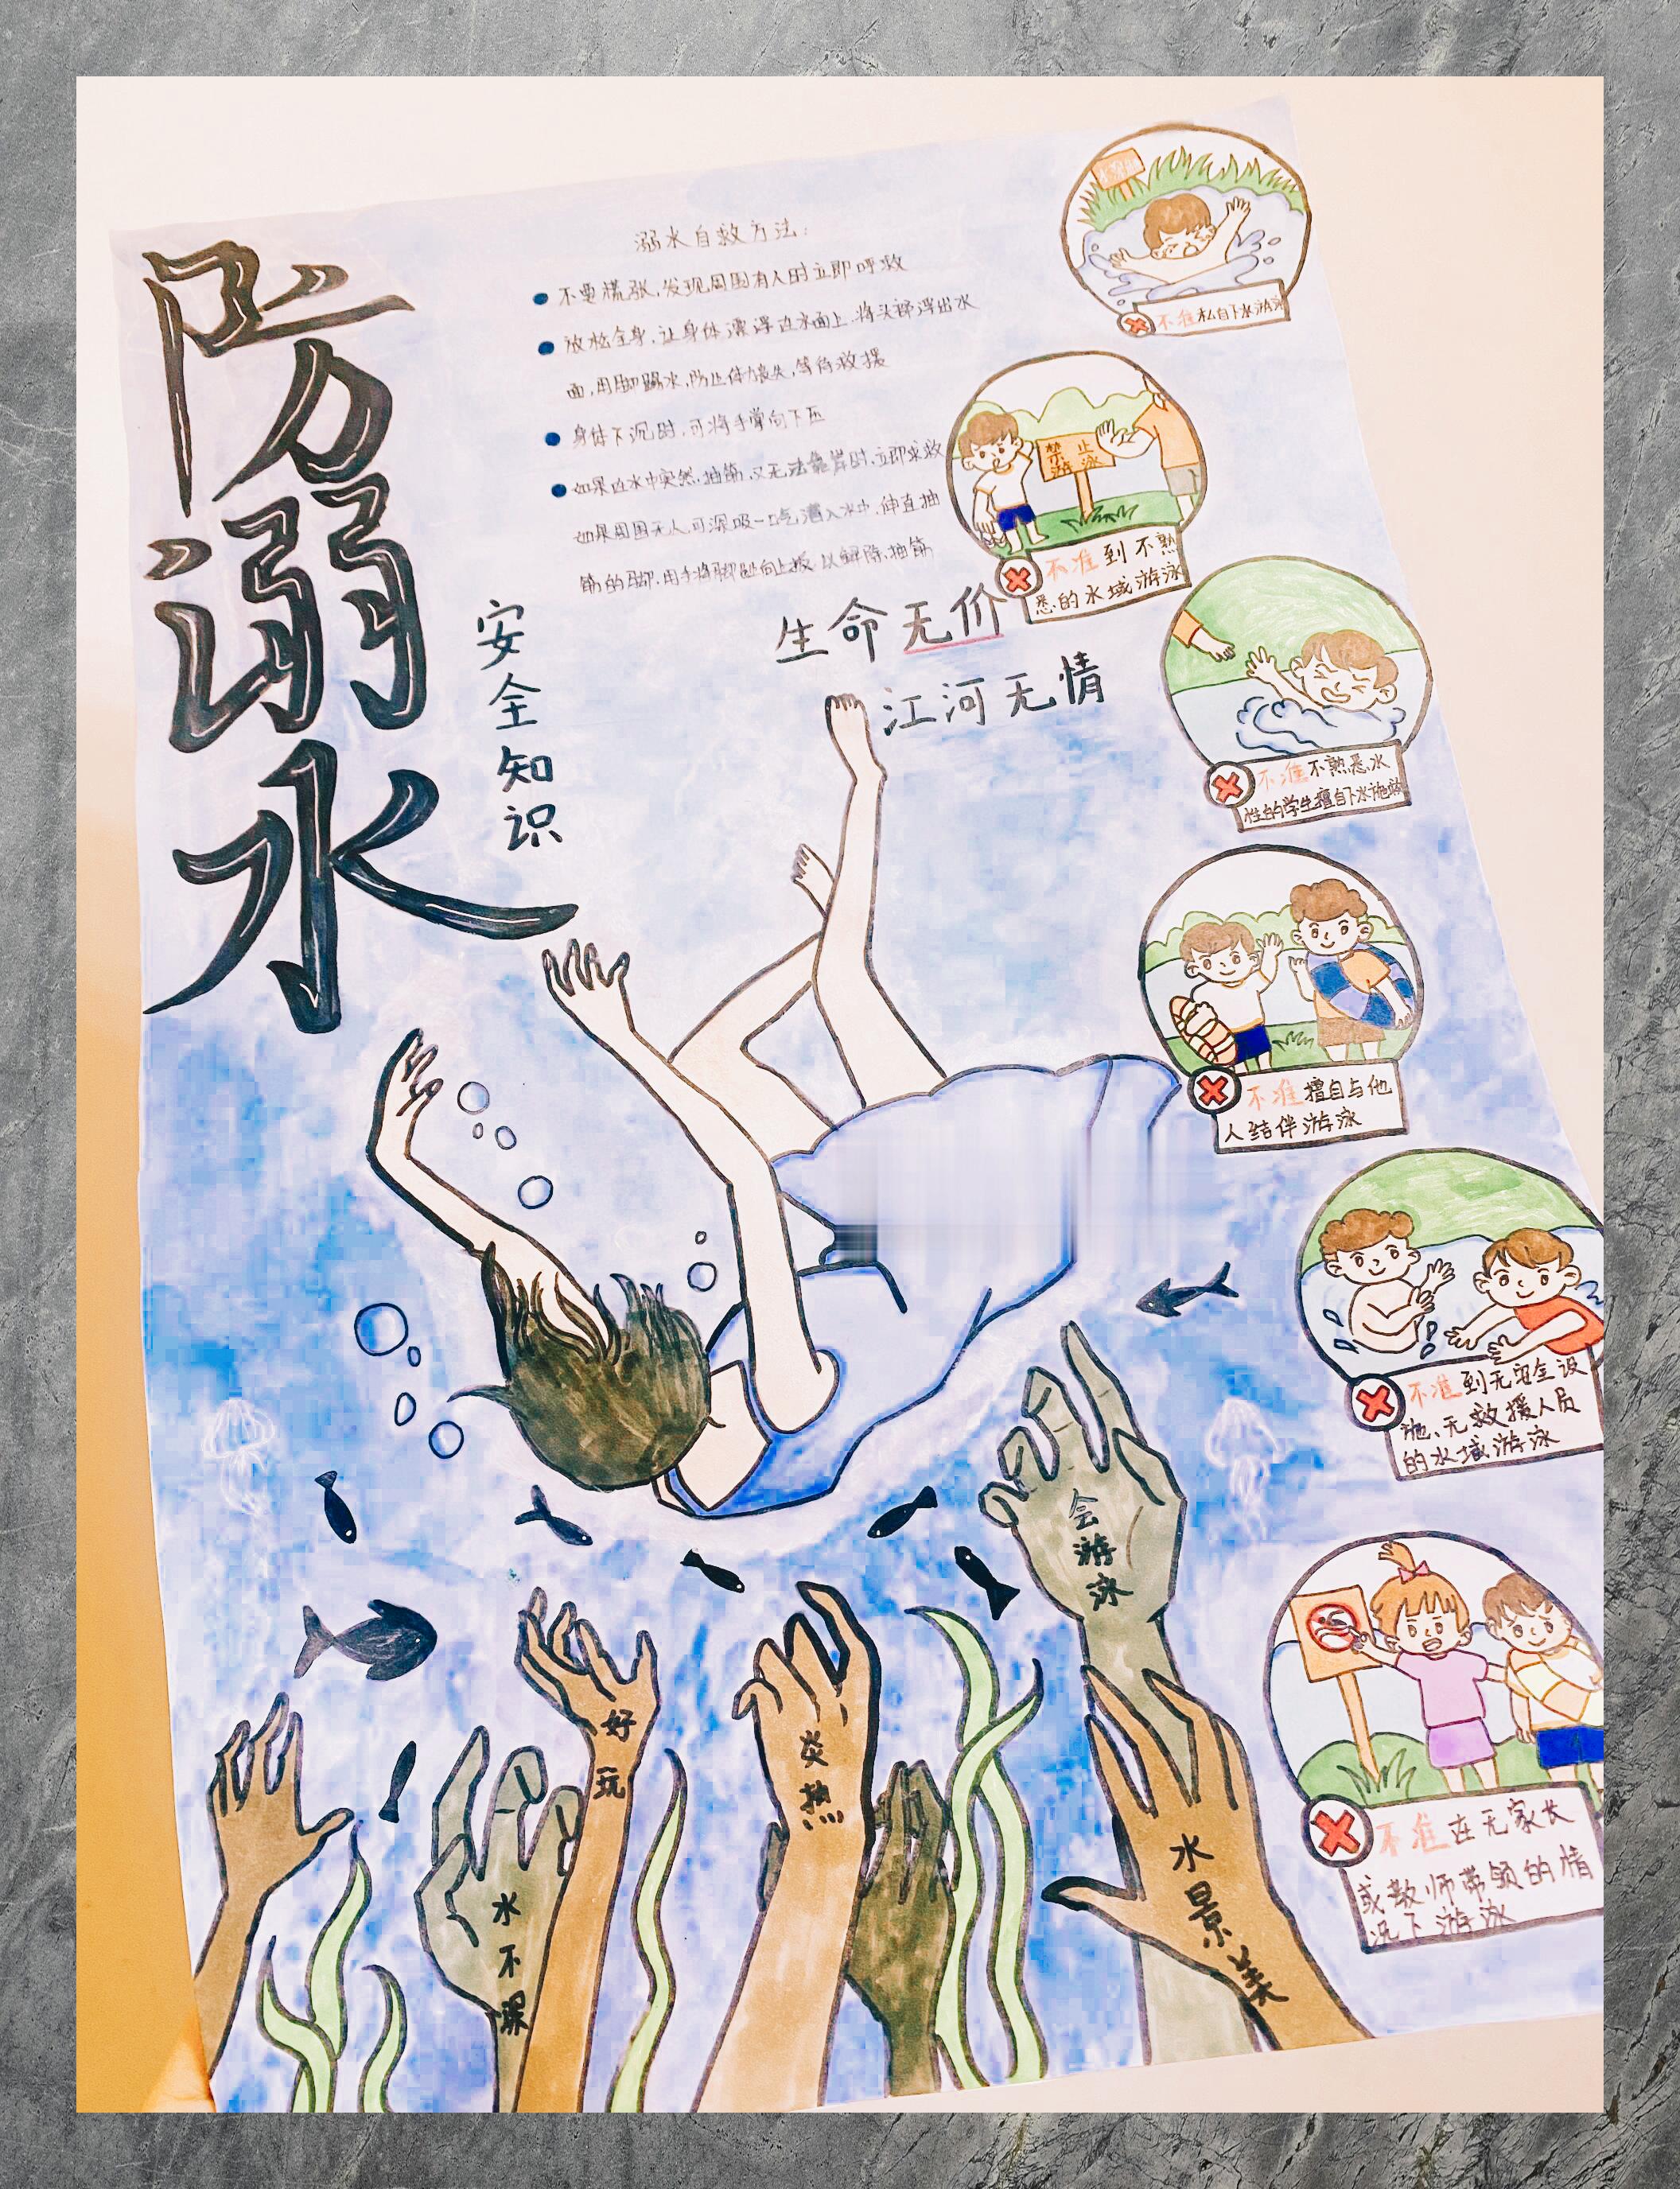 防溺水
安全知识
溺水自救方法：
不要慌张,发现周围有人时立即呼救
放松全身,让身体漂浮在水面上,将头部浮出水
面,用脚踢水,防止体力丧失,等待救援
身体下沉时,可将手掌向下压
如果在水中突然抽筋,又无法靠岸时,立即求救
如果周围无人,可深吸一口气潜入水中,伸直抽
筋的脚,用手将脚趾向上扳,以解除抽筋
生命无价
江河无情
不准私自下水游泳
禁止
游泳
不准到不熟
悉的水域游泳
不准不熟悉水
性的学生擅自下水施救
不准擅自与他
人结伴游泳
不准到无安全设
施、无救援人员
的水域游泳
不准在无家长
或教师带领的情
况下游泳
会游泳
好玩
炎热
水不深
水景美